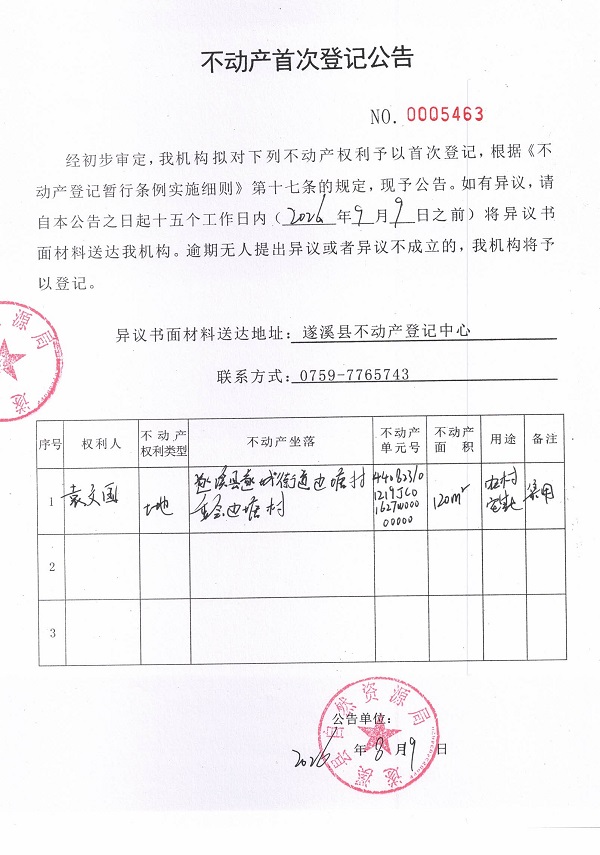 不动产首次登记公告
NO. 0005463
经初步审定,我机构拟对下列不动产权利予以首次登记,根据《不
动产登记暂行条例实施细则》第十七条的规定,现予公告。如有异议,请
自本公告之日起十五个工作日内(2026年9月9日之前)将异议书
面材料送达我机构。逾期无人提出异议或者异议不成立的,我机构将予
以登记。
异议书面材料送达地址:遂溪县不动产登记中心
联系方式:0759-7765743
序号 权利人 不动产权利类型 不动产坐落 不动产单元号 不动产面积 用途 备注
1 袁文国 土地 遂溪县遂城街道边塘村 边塘村 440823101219JC01627W00000000 120m² 农村宅基地 集用
2
3
公告单位:
2026年8月9日
遂溪县自然资源局